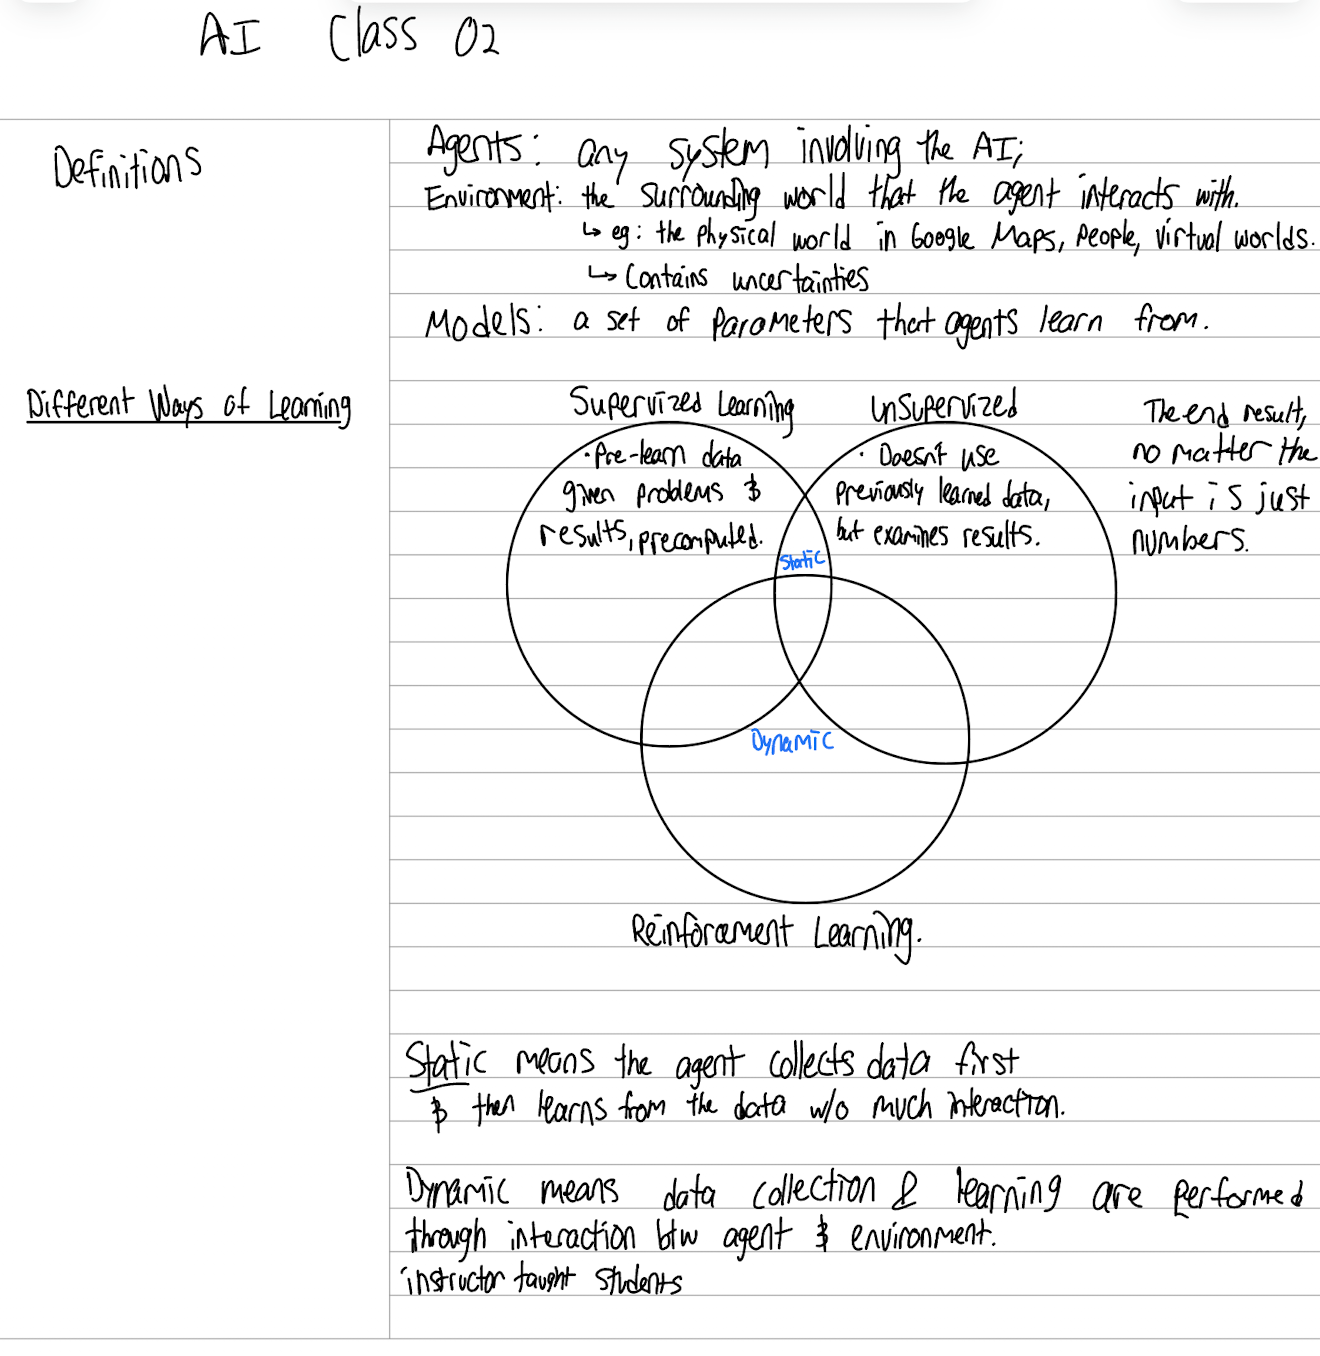 AI Class 02
Definitions
Agents: any system involving the AI;
Environment: the surrounding world that the agent interacts with.
↳ eg: the physical world in Google Maps, people, virtual worlds.
↳ Contains uncertainties
Models: a set of parameters that agents learn from.
Different Ways of Learning
Supervized Learning
unsupervized
· Pre-learn data
given problems &
results, precomputed.
· Doesn't use
previously learned data,
but examines results.
The end result,
no matter the
input is just
numbers.
Static
Dynamic
Reinforcement Learning.
Static means the agent collects data first
& then learns from the data w/o much interaction.
Dynamic means data collection & learning are performed
through interaction btw agent & environment.
instructor taught students